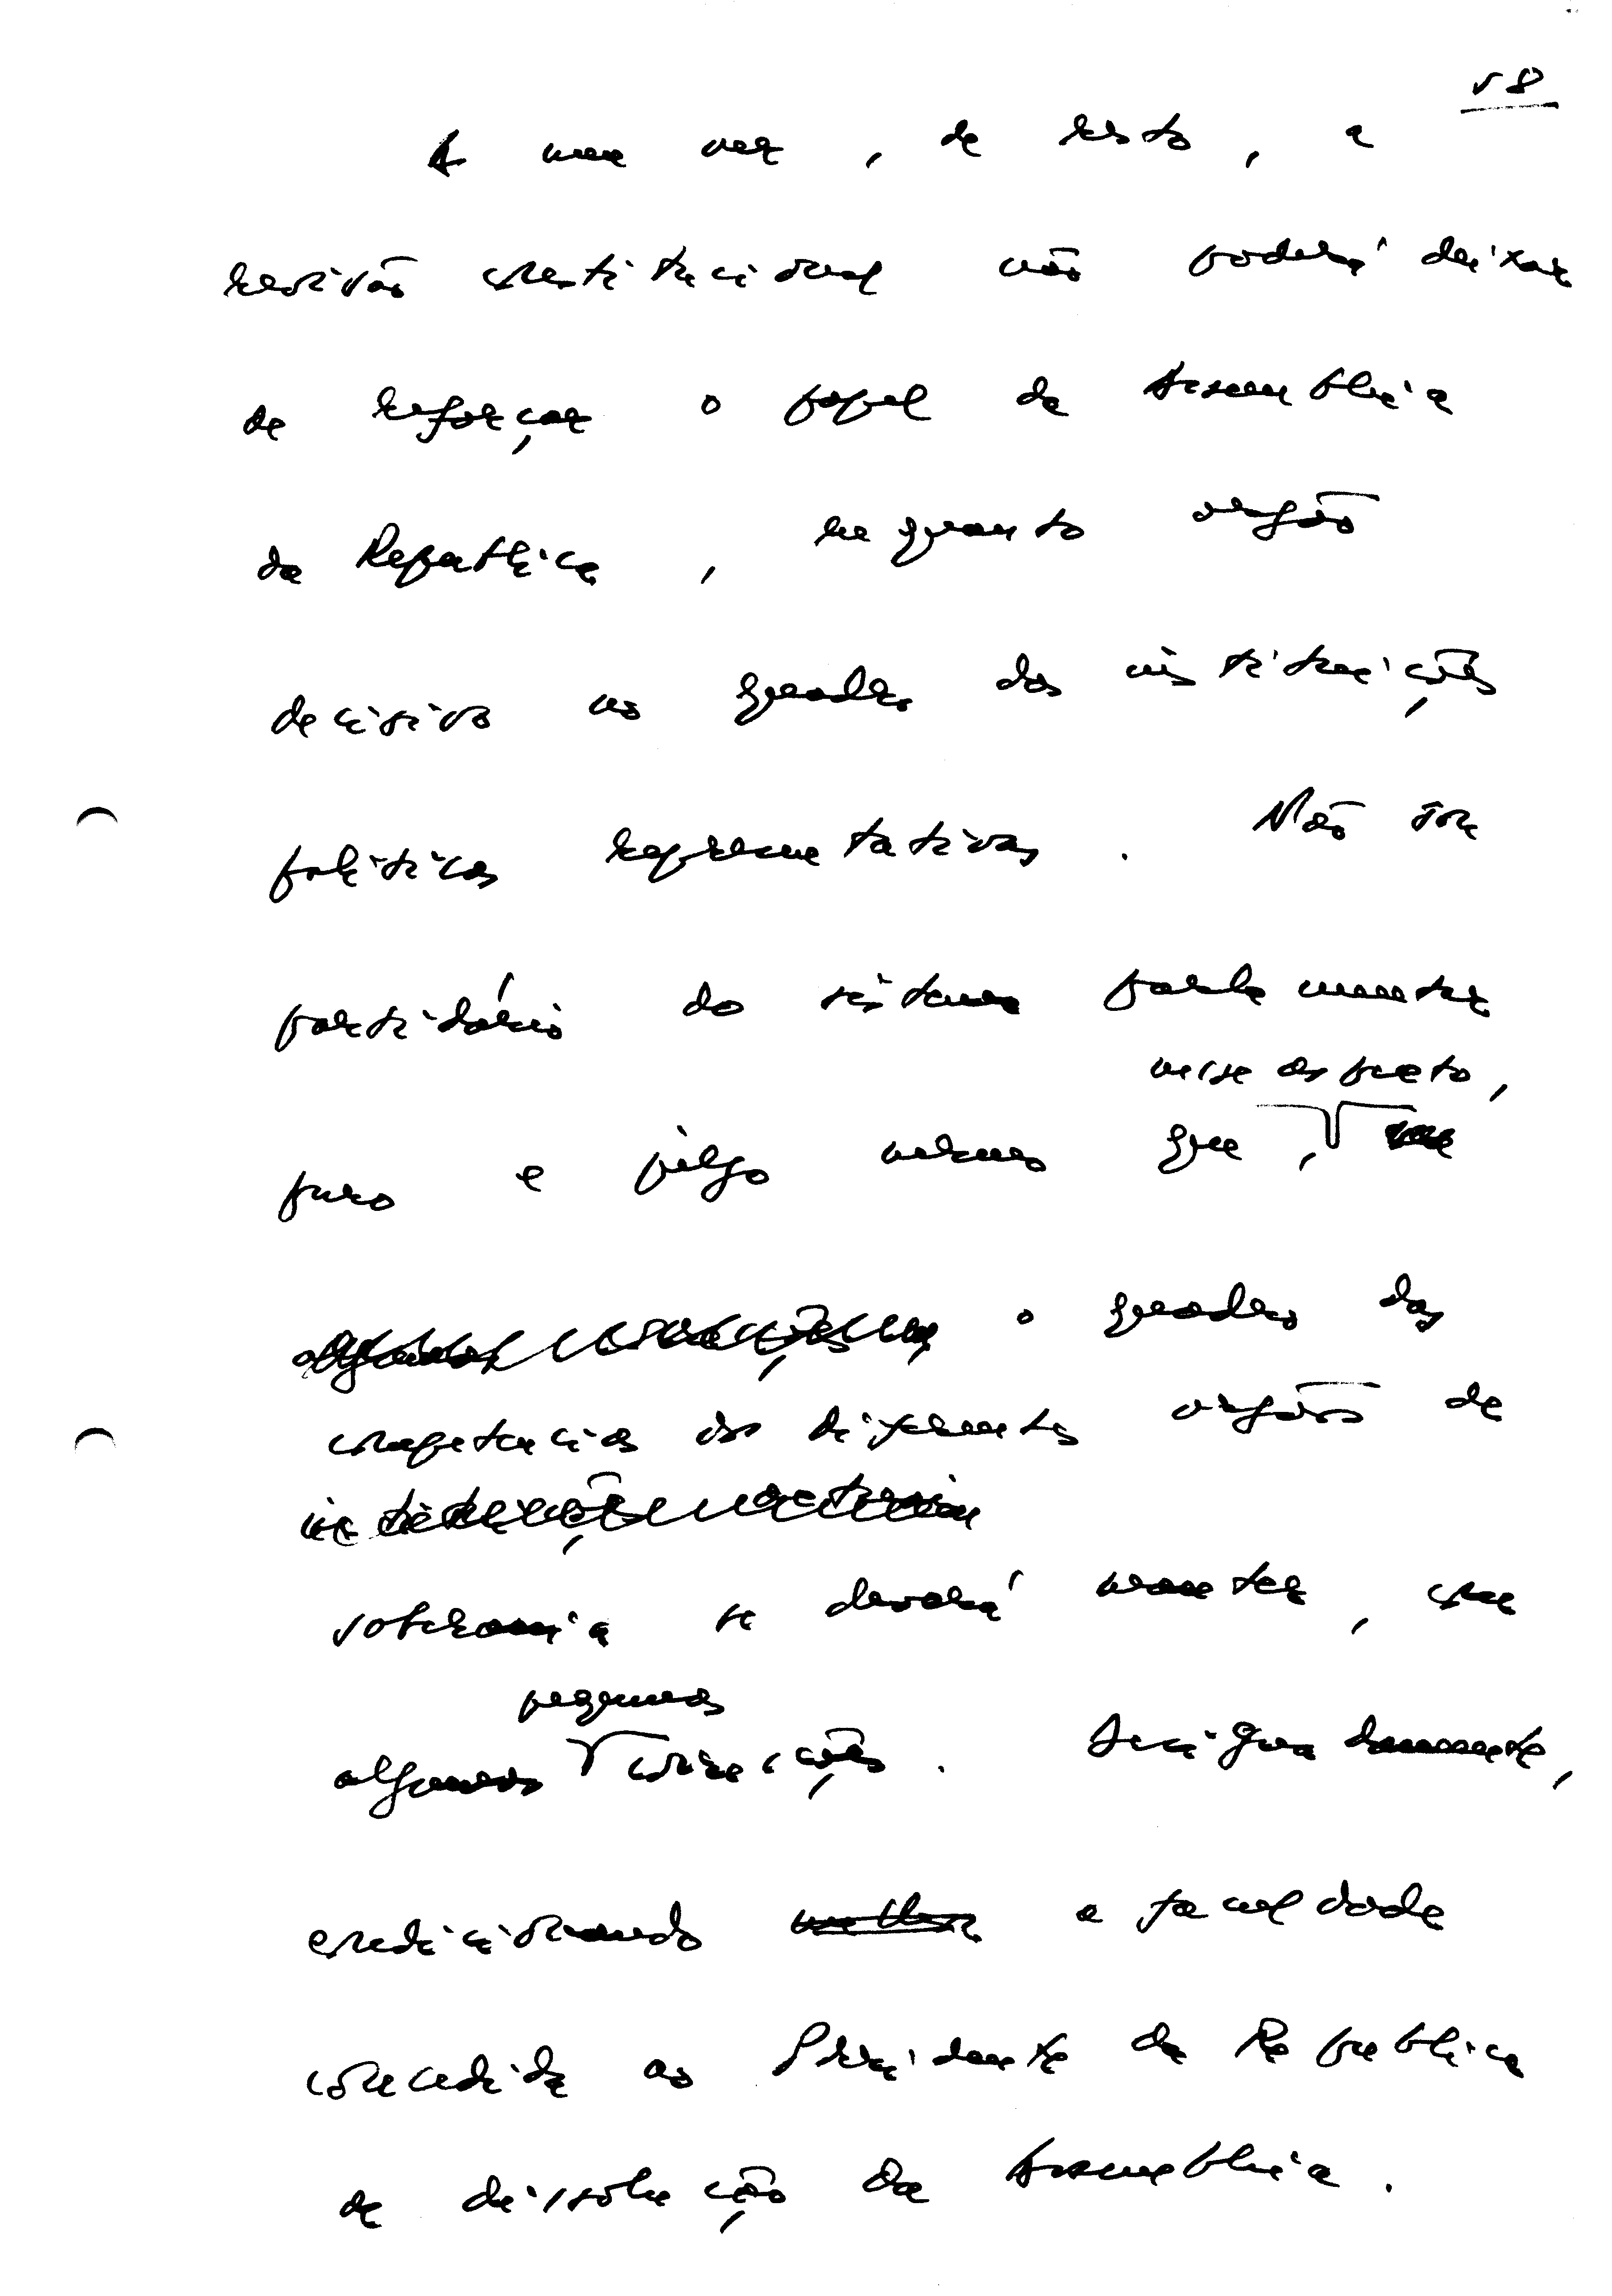 58
A meu ver, de resto, a
revisão constitucional não poderá deixar
de reforçar o papel da Assembleia
da República, enquanto orgão
decisivo no quadro das instituições
políticas representativas. Não sou
partidário do sistema parlamentar
nesse aspecto,
puro e julgo mesmo que,
o quadro das
competencias dos diferentes orgãos de
soberania se deverá manter, com
pequenas
algumas correcções. Designadamente,
condicionando a faculdade
concedida ao Presidente da Republica
de dissolução da Assembleia.